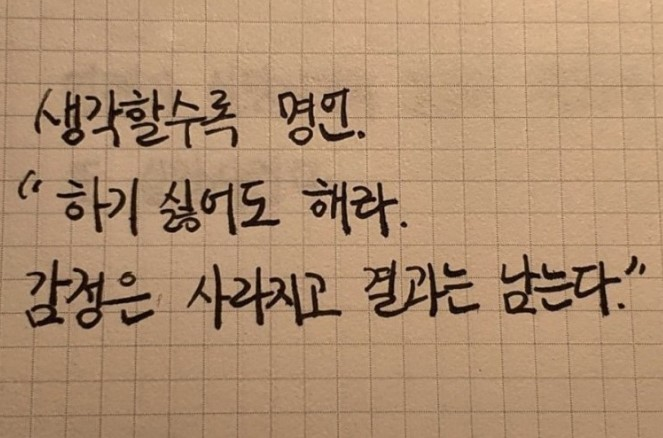 생각할수록 명언.
“하기 싫어도 해라.
감정은 사라지고 결과는 남는다.”